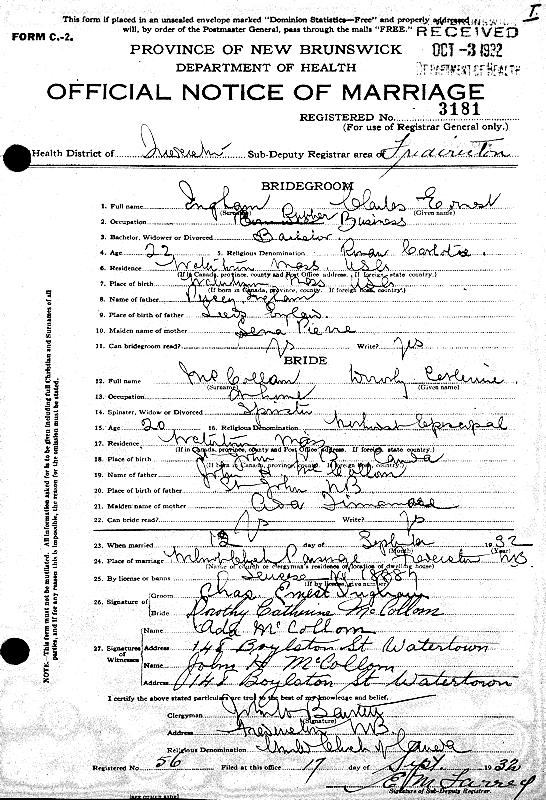 This form if placed in an unsealed envelope marked "Dominion Statistics—Free" and properly addressed
will, by order of the Postmaster General, pass through the mails "FREE."
I.
FORM C.-2.
RECEIVED
OCT -3 1932
DEPARTMENT OF HEALTH
PROVINCE OF NEW BRUNSWICK
DEPARTMENT OF HEALTH
OFFICIAL NOTICE OF MARRIAGE
REGISTERED No. 3181
(For use of Registrar General only.)
Health District of Sub-Deputy Registrar area of Fredericton
BRIDEGROOM
1. Full name Ingham Charles Ernest
(Surname) (Given name)
2. Occupation Rubber Business
3. Bachelor, Widower or Divorced Bachelor
4. Age 22 5. Religious Denomination Roman Catholic
6. Residence Watertown Mass USA
(If in Canada, province, county and Post Office address. If foreign, state country.)
7. Place of birth Watertown Mass USA
(If born in Canada, province, county. If foreign born, country.)
8. Name of father Ingham
9. Place of birth of father Leeds England
10. Maiden name of mother Lena Pierre
11. Can bridegroom read? Yes Write? Yes
BRIDE
12. Full name McCollam Dorothy Catherine
(Surname) (Given name)
13. Occupation At home
14. Spinster, Widow or Divorced Spinster
15. Age 20 16. Religious Denomination Methodist Episcopal
17. Residence Watertown Mass
(If in Canada, province, county and Post Office address. If foreign, state country.)
18. Place of birth St John N B Canada
(If born in Canada, province, county. If foreign born, country.)
19. Name of father John H McCollom
20. Place of birth of father St John NB
21. Maiden name of mother Ada
22. Can bride read? Yes Write? Yes
23. When married day of September 1932
(Month) (Year)
24. Place of marriage Parsonage Fredericton NB
(Name of church or clergyman's residence or location of dwelling house)
25. By license or banns License No 18887
(If by license, give number)
26. Signature of Groom Chas. Ernest Ingham
Bride Dorothy Catherine McCollom
27. Signatures of Witnesses
Name Ada McCollom
Address 148 Boylston St Watertown
Name John H McCollom
Address 148 Boylston St Watertown
I certify the above stated particulars are true to the best of my knowledge and belief.
Clergyman
(Signature)
Address Fredericton NB
Religious Denomination United Church of Canada
Registered No. 56 Filed at this office 17 day of Sept 1932
Signature of Sub-Deputy Registrar.
NOTE.—This form must not be mutilated. All information asked for is to be given including full Christian and Surnames of all
parties, and if for any reason this is impossible, the reason for the omission must be stated.